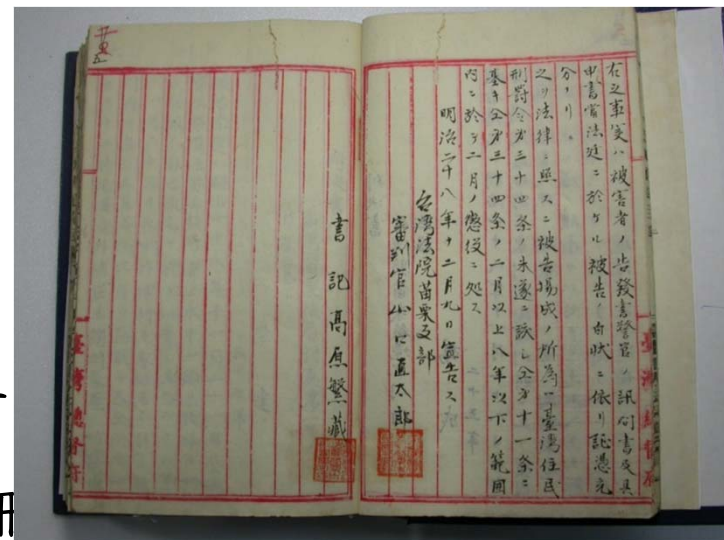 右之事実ハ被害者ノ告發書警官ノ訊問書及具
申書當法廷ニ於ケル被告ノ自狀ニ依リ証憑充
分ナリ。
之ヲ法律ニ照スニ被告揚成ノ所為ハ臺湾住民
刑罰令第三十四条ノ未遂ニ該シ仝第十一条ニ
基キ仝第三十四条ノ二月以上八年以下ノ範囲
内ニ於テ二月ノ懲役ニ処ス
明治二十八年十二月九日宣告ス
台湾法院苗栗支部
審判官 山口直太郎
書記 高原繁藏
臺灣總督府
臺灣總督府